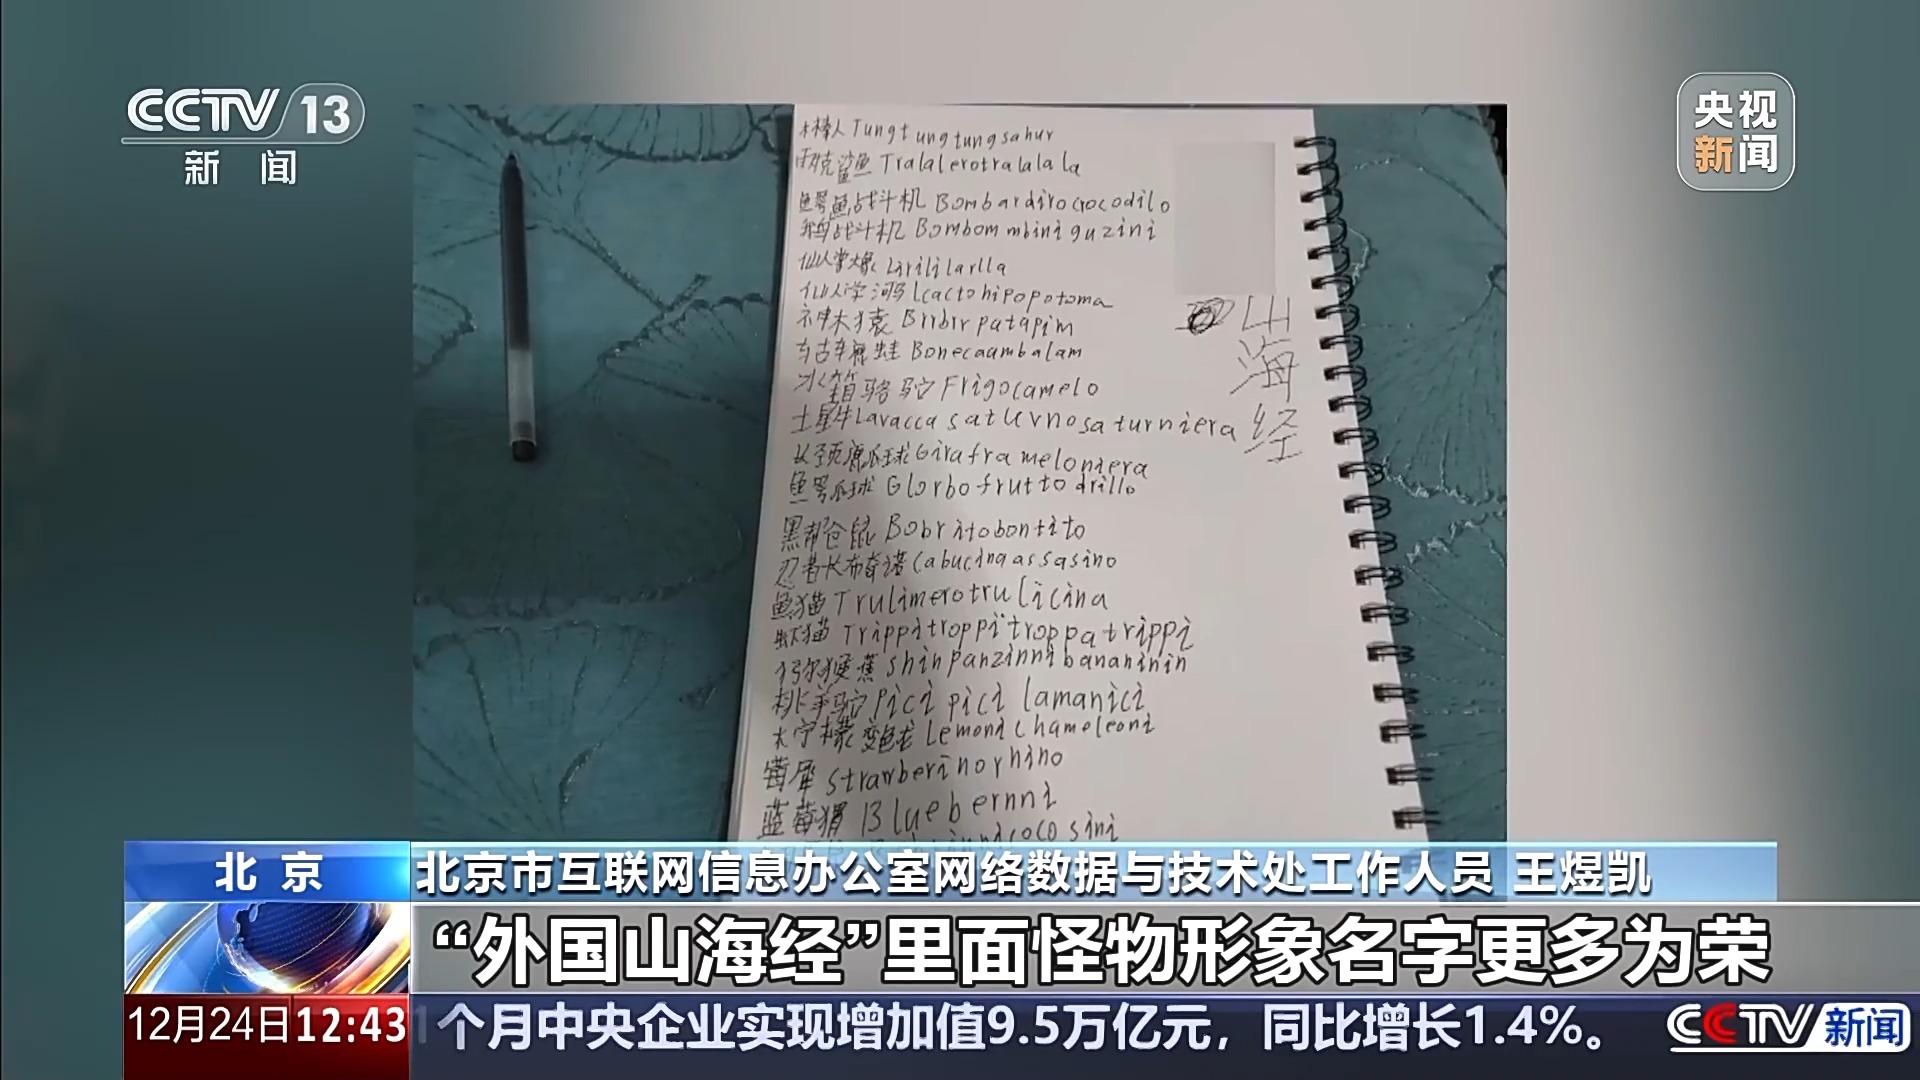 CCTV 13
新闻
央视
新闻
木棒人 Tungtungtungsahur
耐克鲨鱼 Tralalerotralalala
鳄鱼战斗机 Bombardirocrocodilo
鹅战斗机 Bombommbiniguzini
仙人掌大象 Lirililarlla
仙人掌河马 Lcactohipopotoma
树木猿 Brrbrrpatapim
Bonecaambalam
冰箱骆驼 Frigocamelo
土星牛 Lavaccasaturnosaturniera
长颈鹿瓜球 Giraframeloniera
鱼鳄瓜球 Glorbofruttodrillo
黑帮仓鼠 Bobritobontito
忍者卡布奇诺 Cabucinaassasino
鱼猫 Trulimerotrulicina
虾猫 Trippitroppitroppatrippi
猕猴蕉 shinpanzinnibananinin
桃羊驼 Picipicilamanici
柠檬变色龙 Lemonichameleoni
莓犀 strawberinorhino
蓝莓猬 Bluebernni
cocosini
山
海
经
北京
北京市互联网信息办公室网络数据与技术处工作人员 王煜凯
“外国山海经”里面怪物形象名字更多为荣
12月24日12:43
个月中央企业实现增加值9.5万亿元，同比增长1.4%。
CCTV新闻